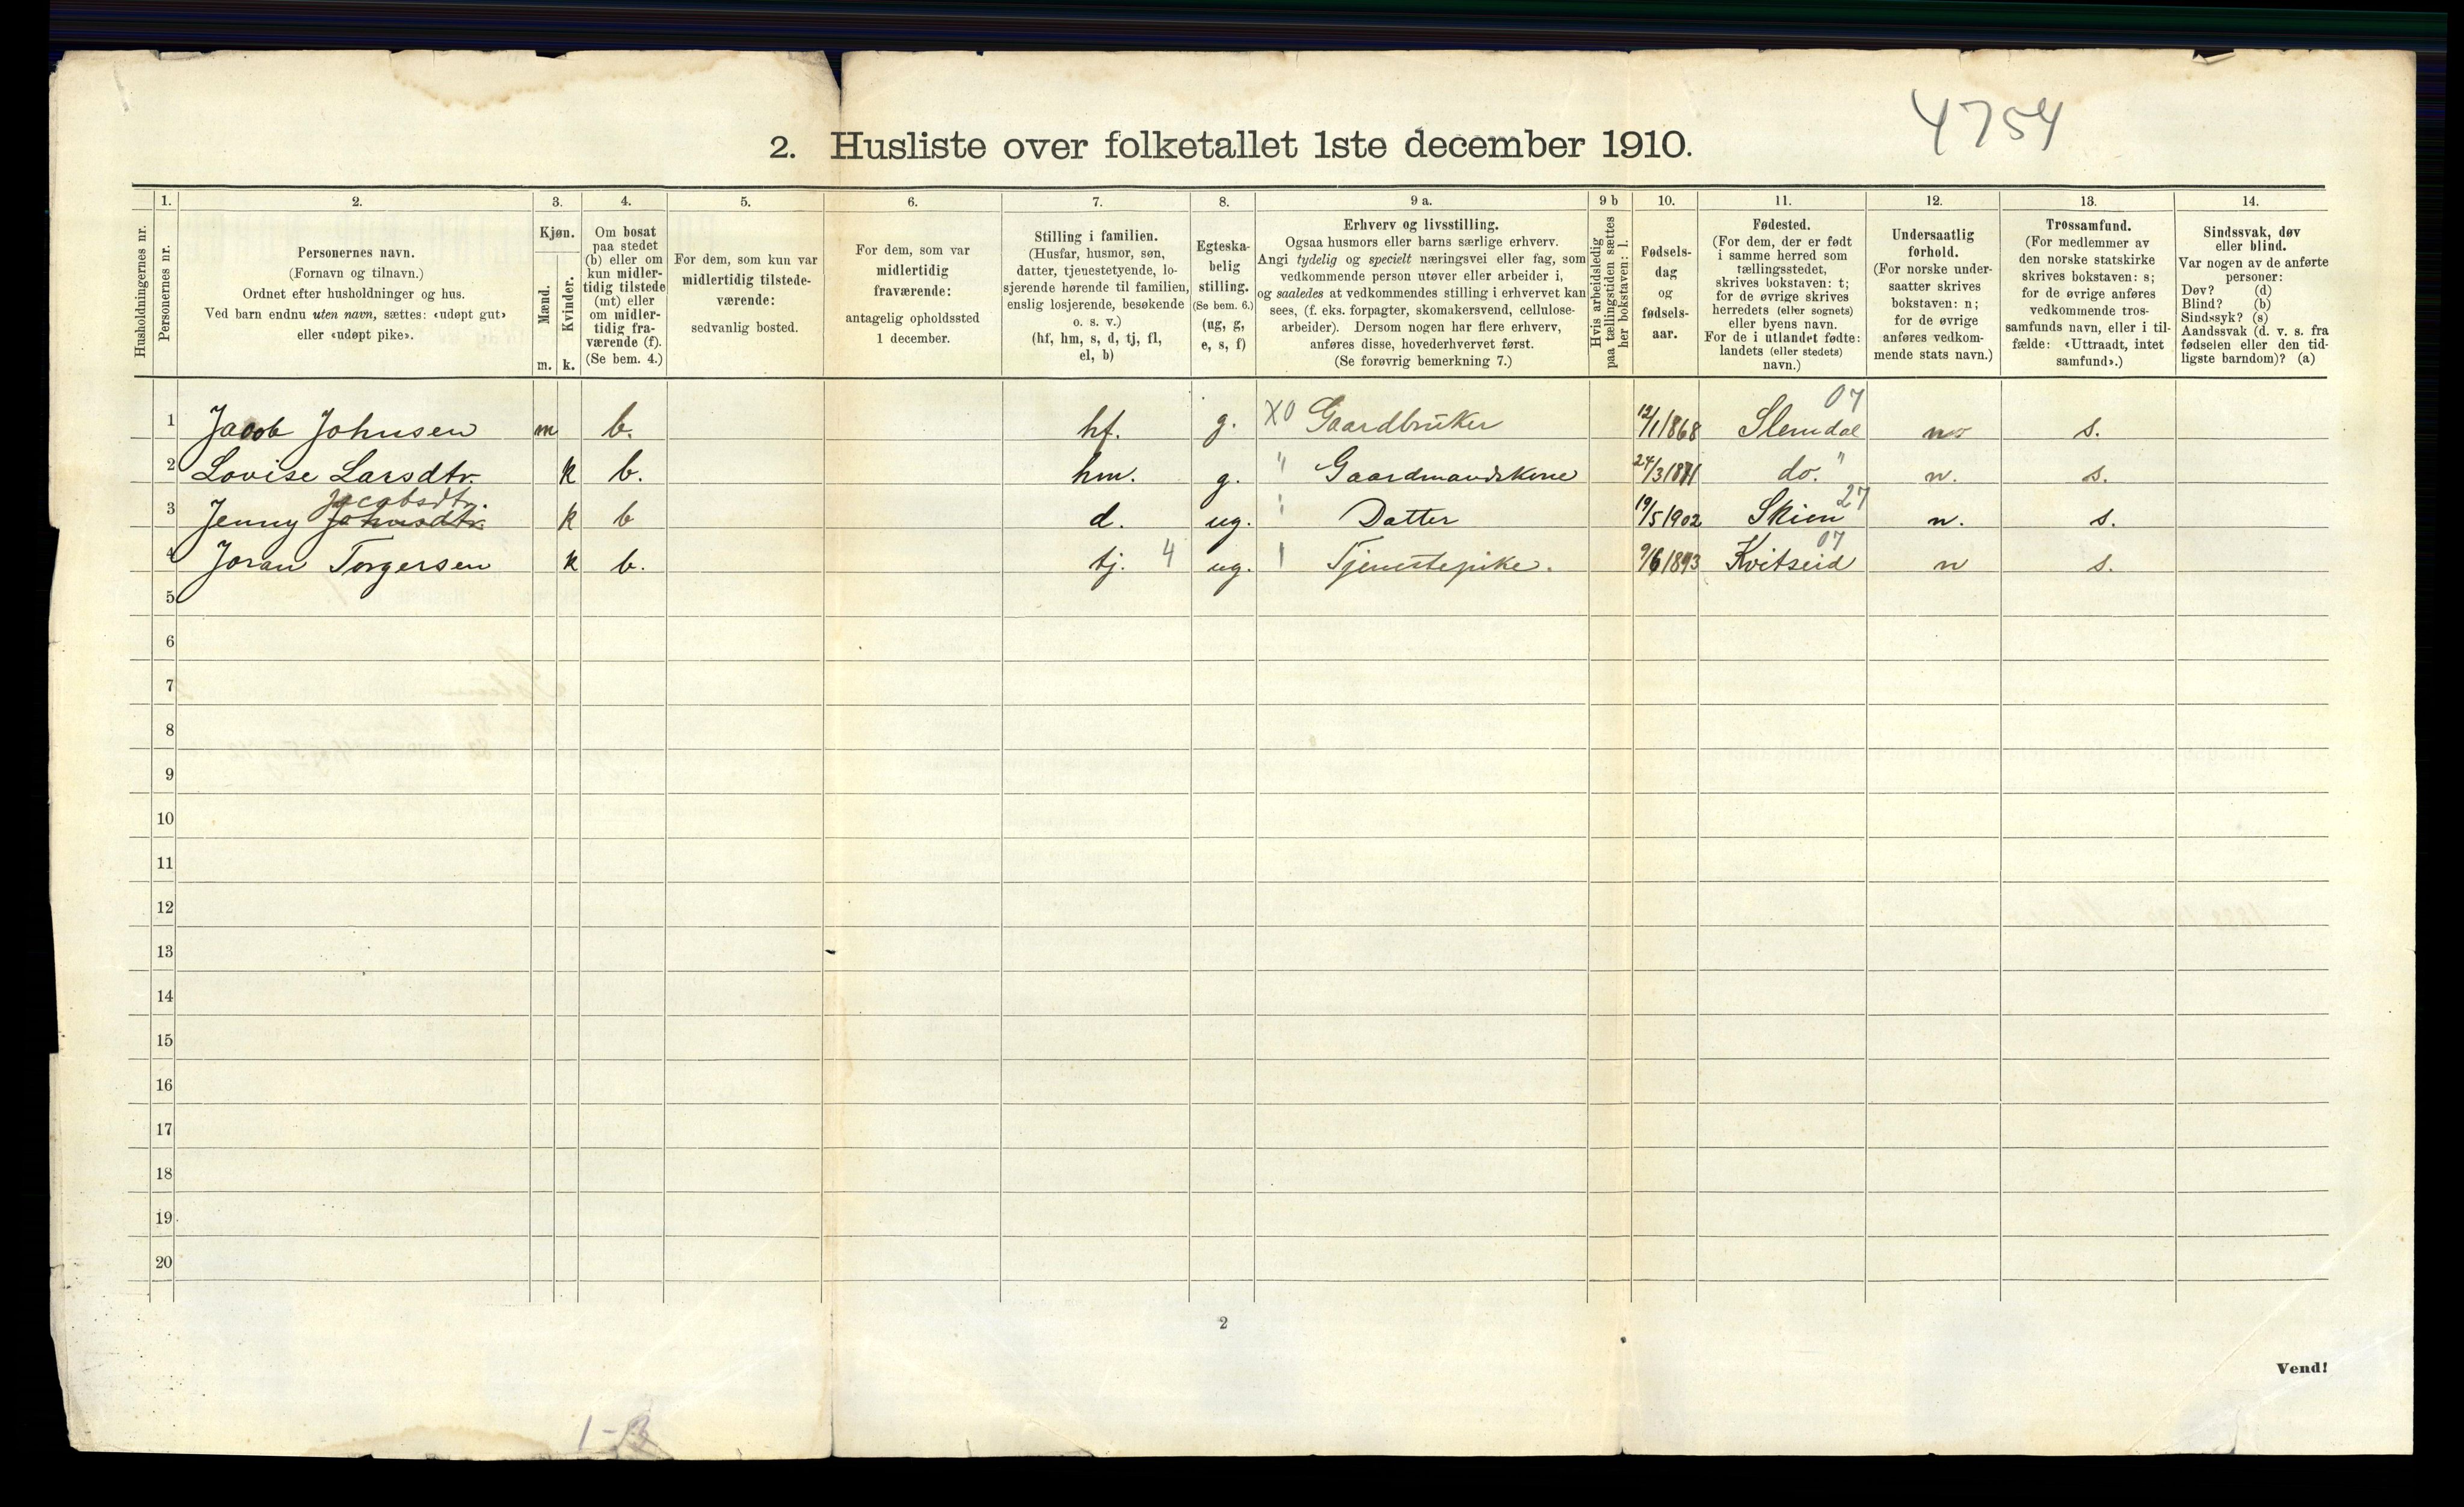 4754
2. Husliste over folketallet 1ste december 1910.
Husholdningernes nr.
1.
Personernes nr.
2.
Personernes navn.
(Fornavn og tilnavn.)
Ordnet efter husholdninger og hus.
Ved barn endnu uten navn, sættes: «udøpt gut»
eller «udøpt pike».
3.
Kjøn.
Mænd.
Kvinder.
m. k.
4.
Om bosat
paa stedet
(b) eller om
kun midler-
tidig tilstede
(mt) eller
om midler-
tidig fra-
værende (f).
(Se bem. 4.)
5.
For dem, som kun var
midlertidig tilstede-
værende:
sedvanlig bosted.
6.
For dem, som var
midlertidig
fraværende:
antagelig opholdssted
1 december.
7.
Stilling i familien.
(Husfar, husmor, søn,
datter, tjenestetyende, lo-
sjerende hørende til familien,
enslig losjerende, besøkende
o. s. v.)
(hf, hm, s, d, tj, fl,
el, b)
8.
Egteska-
belig
stilling.
(Se bem. 6.)
(ug, g,
e, s, f)
9 a.
Erhverv og livsstilling.
Ogsaa husmors eller barns særlige erhverv.
Angi tydelig og specielt næringsvei eller fag, som
vedkommende person utøver eller arbeider i,
og saaledes at vedkommendes stilling i erhvervet kan
sees, (f. eks. forpagter, skomakersvend, cellulose-
arbeider). Dersom nogen har flere erhverv,
anføres disse, hovederhvervet først.
(Se forøvrig bemerkning 7.)
9 b
Hvis arbeidsledig
paa tællingstiden sættes
her bokstaven: l.
10.
Fødsels-
dag
og
fødsels-
aar.
11.
Fødested.
(For dem, der er født
i samme herred som
tællingsstedet,
skrives bokstaven: t;
for de øvrige skrives
herredets (eller sognets)
eller byens navn.
For de i utlandet fødte:
landets (eller stedets)
navn.)
12.
Undersaatlig
forhold.
(For norske under-
saatter skrives
bokstaven: n;
for de øvrige
anføres vedkom-
mende stats navn.)
13.
Trossamfund.
(For medlemmer av
den norske statskirke
skrives bokstaven: s;
for de øvrige anføres
vedkommende tros-
samfunds navn, eller i til-
fælde: «Uttraadt, intet
samfund».)
14.
Sindssvak, døv
eller blind.
Var nogen av de anførte
personer:
Døv? (d)
Blind? (b)
Sindssyk? (s)
Aandssvak (d. v. s. fra
fødselen eller den tid-
ligste barndom)? (a)
1 Jacob Johnsen m b. hf. g. X0 Gaardbruker 12/1 1868 Slemdal 07 n s.
2 Lovise Larsdtr. k b. hm. g. " Gaardmandskone 24/3 1871 do. " n. s.
3 Jenny Johnsdtr. Jacobsdtr. k b d. ug. " Datter 19/5 1902 Skien 27 n. s.
4 Joran Torgersen k b. tj. 4 ug. Tjenestepike. 9/6 1893 Kvitseid 07 n s.
5
6
7
8
9
10
11
12
13
14
15
16
17
18
19
20
2
Vend!